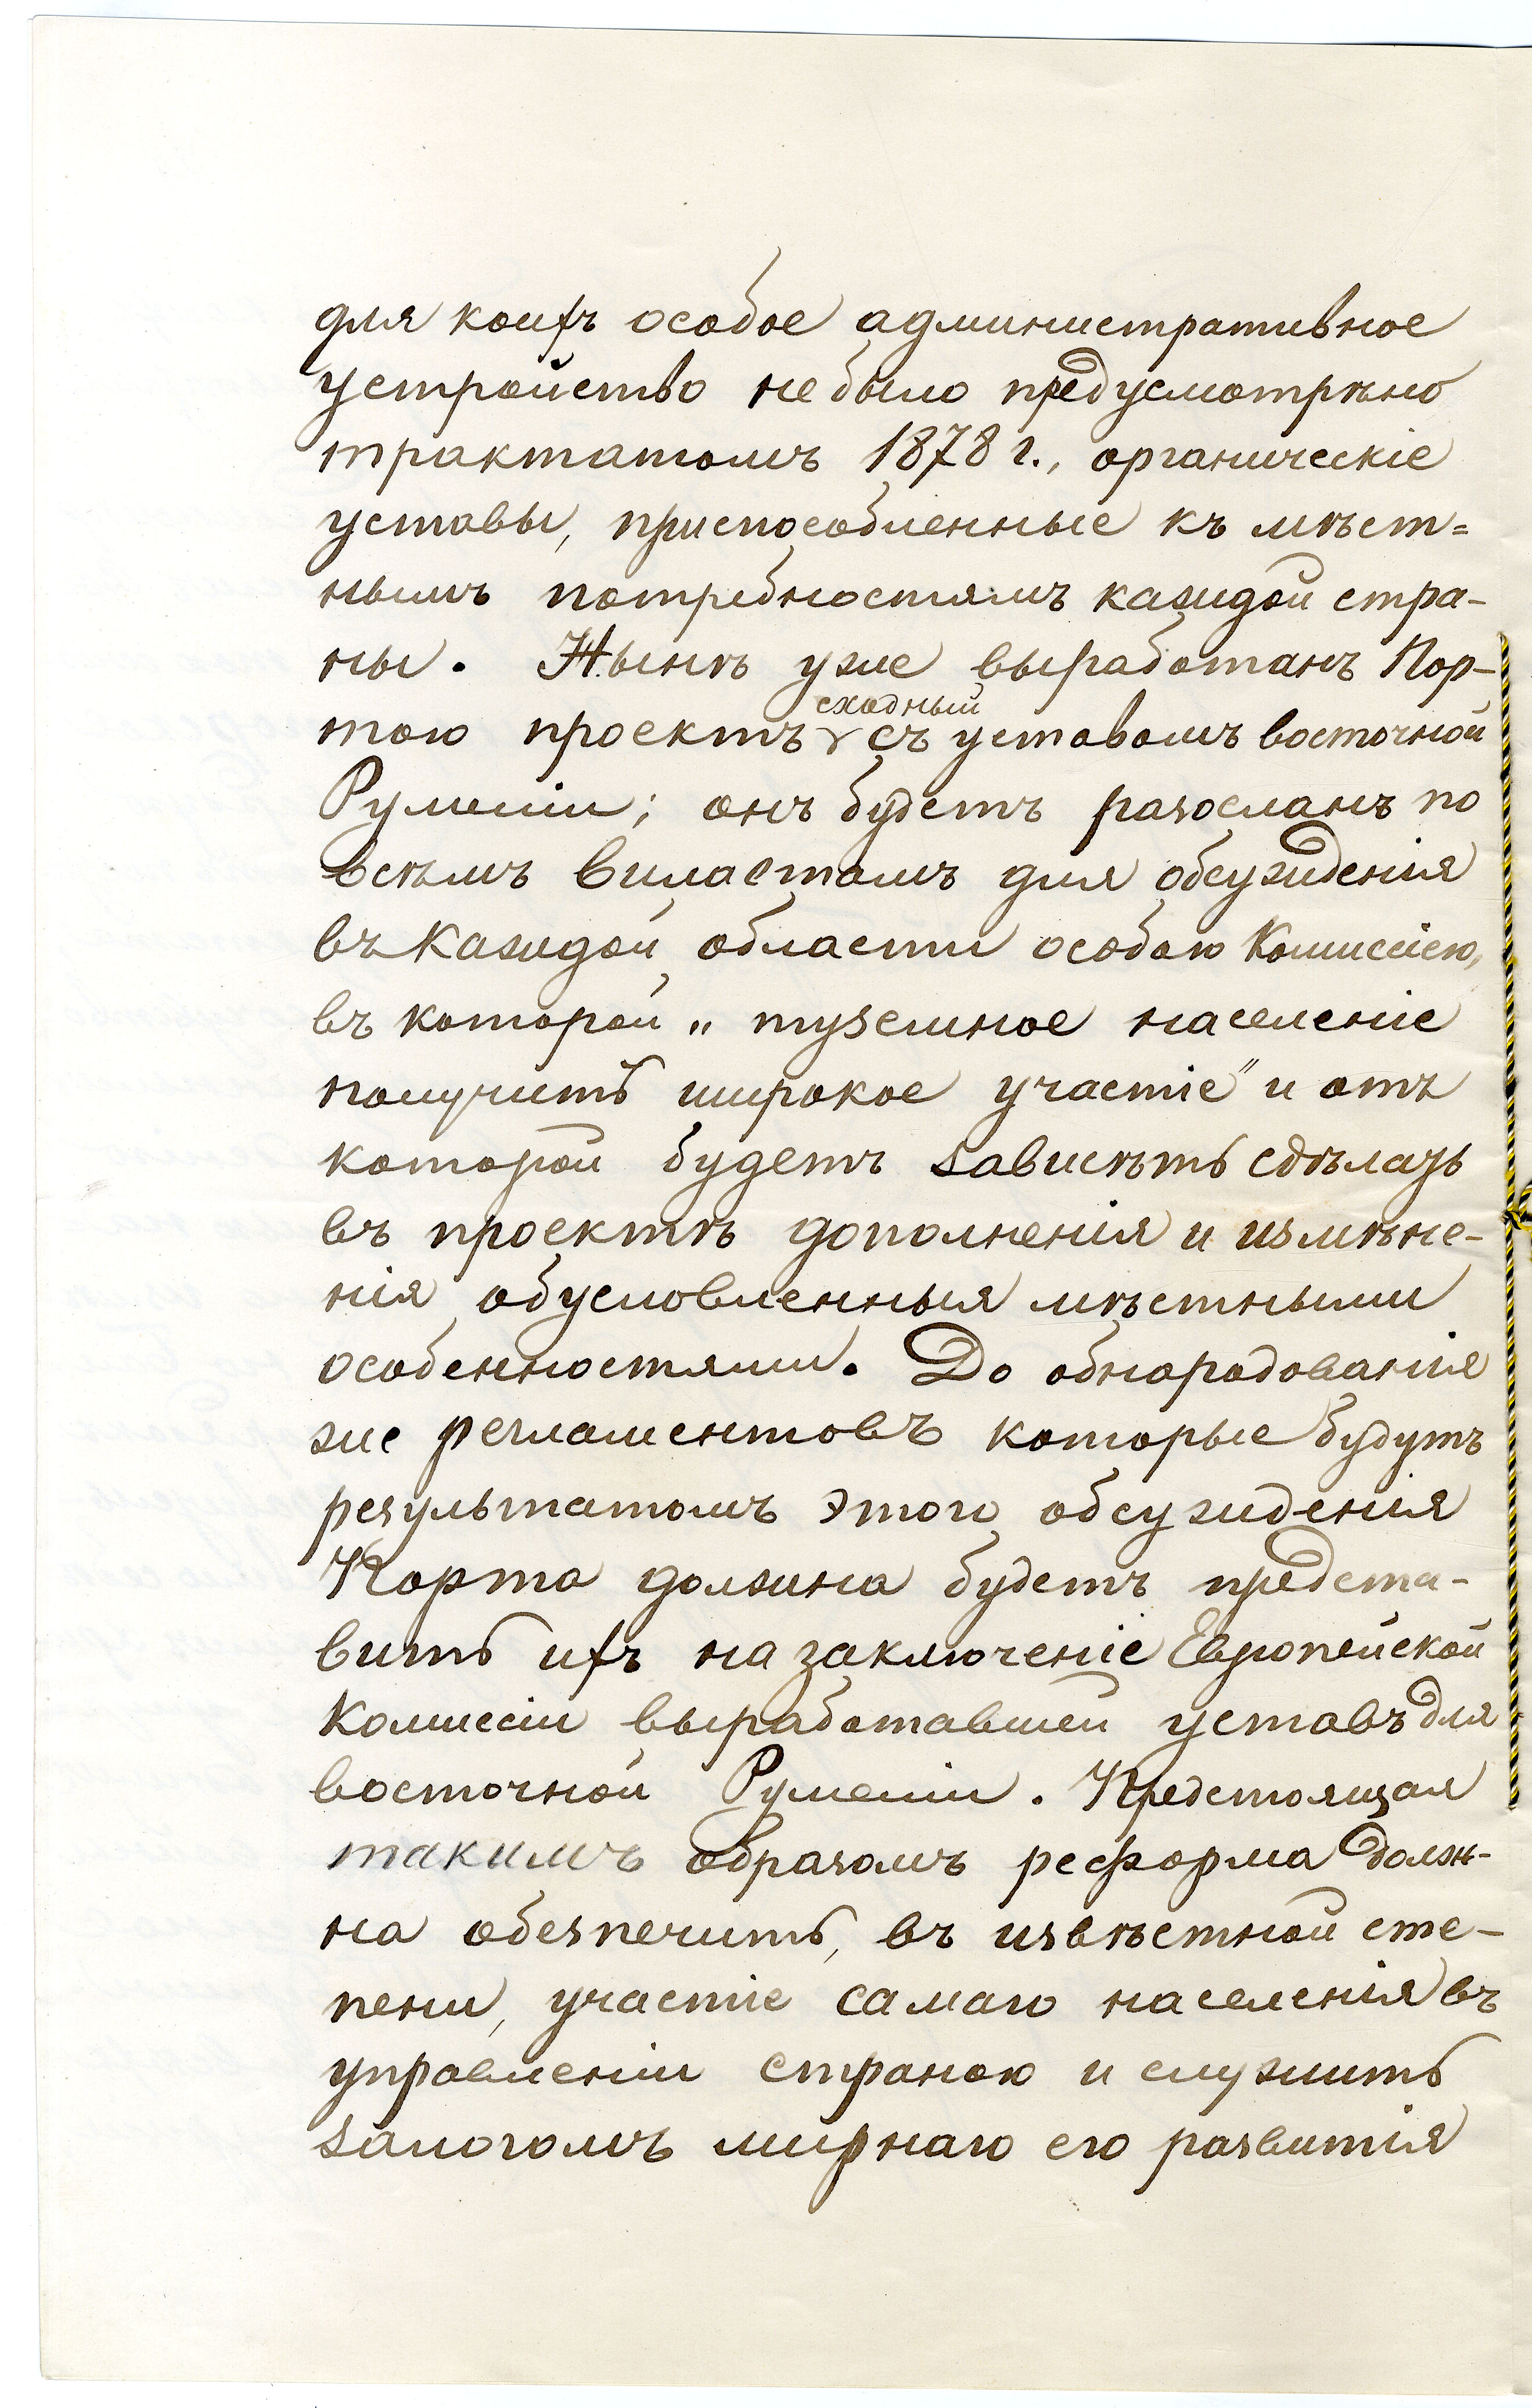 для коихъ особое административное
устройство небыло предусмотрѣно
трактатомъ 1878 г., органическіе
уставы, приспособленные къ мѣст=
нымъ потребностямъ каждой стра-
ны. Нынѣ уже выработанъ Пор-
тою проектъ сходный съ уставомъ восточной
Румеліи; онъ будетъ разосланъ по
всѣмъ виластамъ для обсужденія
въ каждой области особою Коммиссіею,
въ которой „туземное населеніе
получитъ широкое участіе" и отъ
которой будетъ зависѣть сдѣлать
въ проектѣ дополненія и измѣне-
нія обусловленныя мѣстными
особенностями. До обнародованія
же регламентовъ которые будутъ
результатомъ этого обсужденія
Порта должна будетъ предста-
вить ихъ на заключеніе Европейской
Коммиссіи выработавшей уставъ для
восточной Румеліи. Предстоящая
такимъ образомъ реформа долж-
на обезпечить, въ извѣстной сте-
пени, участіе самаго населенія въ
управленіи страною и служить
залогомъ мирнаго его развитія